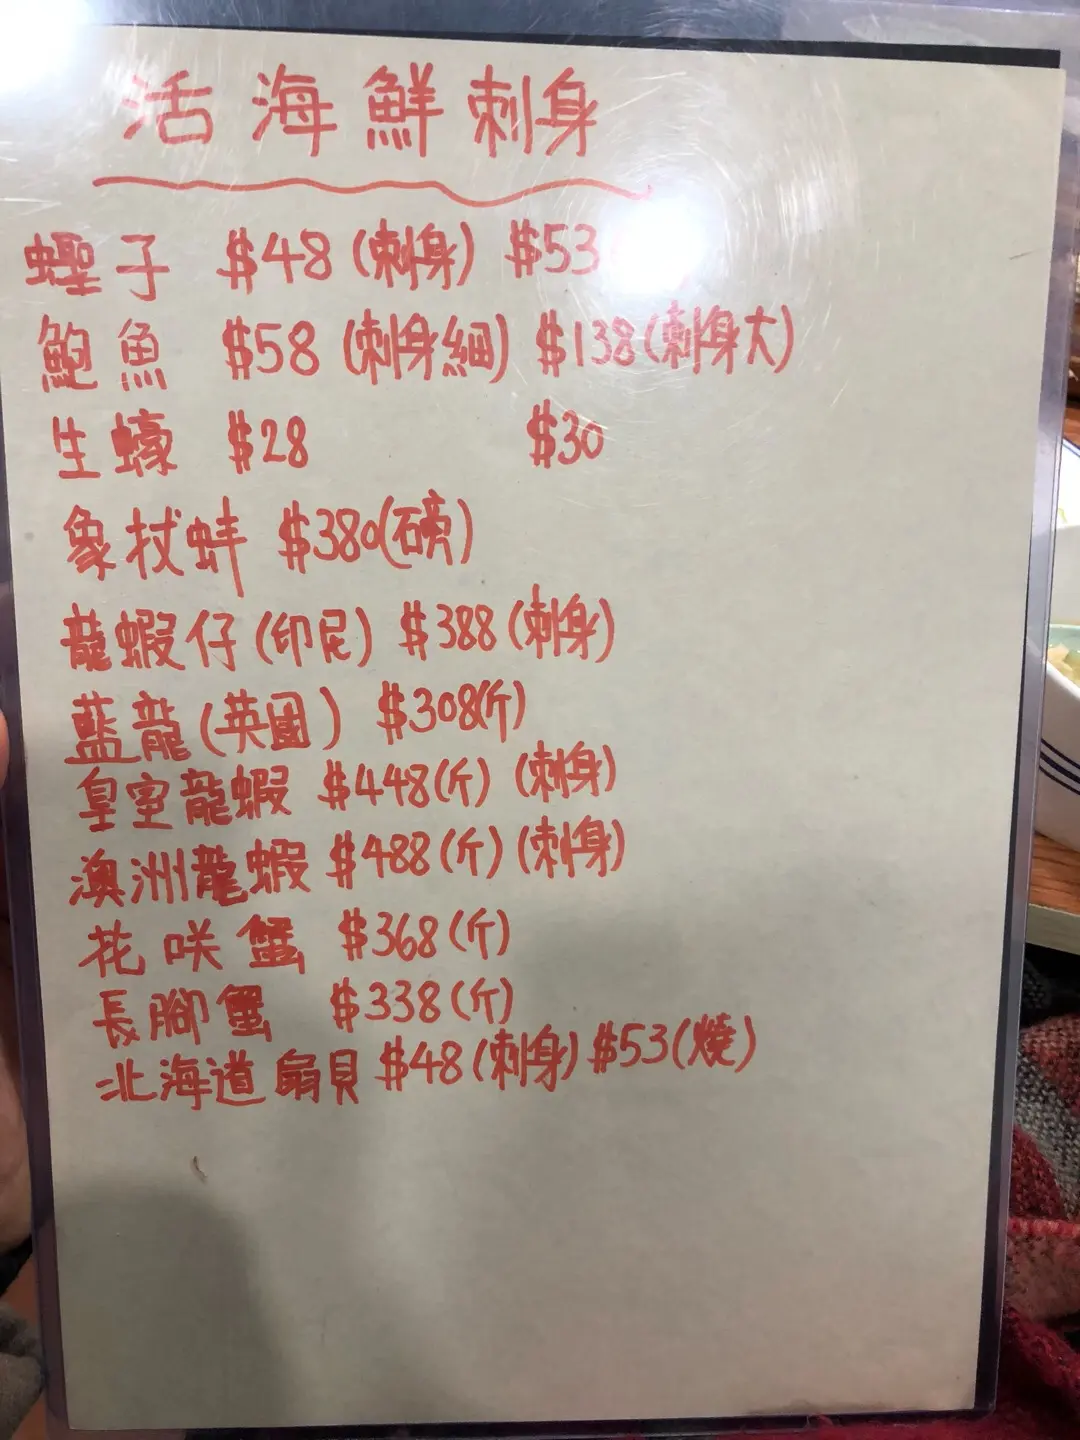 活海鮮刺身
蟶子 $48(刺身) $53
鮑魚 $58(刺身細) $138(刺身大)
生蠔 $28 $30
象拔蚌 $380(磅)
龍蝦仔(印尼) $388(刺身)
藍龍(英國) $308(斤)
皇室龍蝦 $448(斤)(刺身)
澳洲龍蝦 $488(斤)(刺身)
花咲蟹 $368(斤)
長腳蟹 $338(斤)
北海道扇貝 $48(刺身) $53(燒)